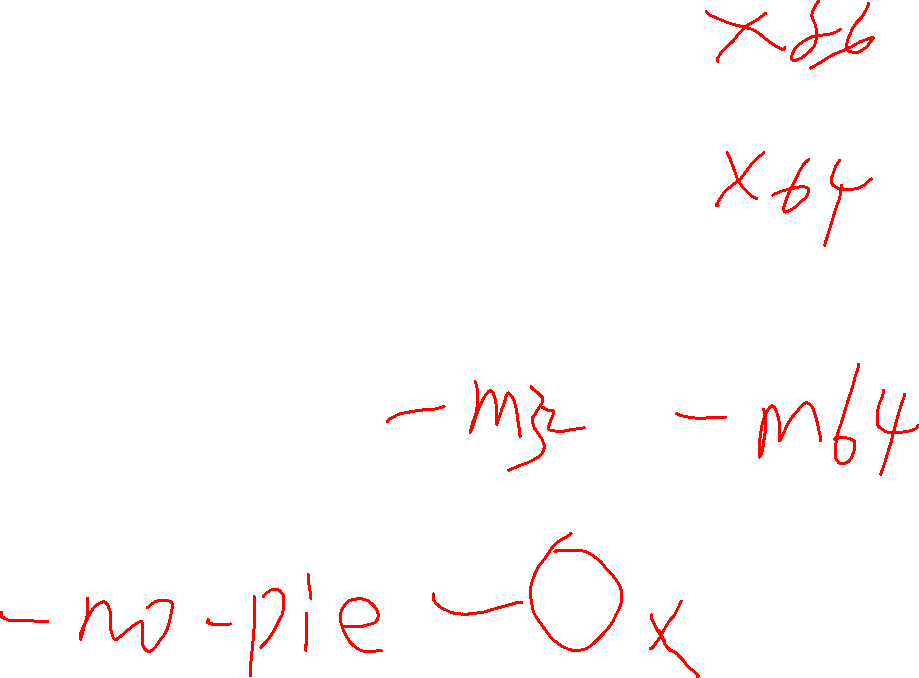 x86
x64
-m32 -m64
-no-pie -Ox